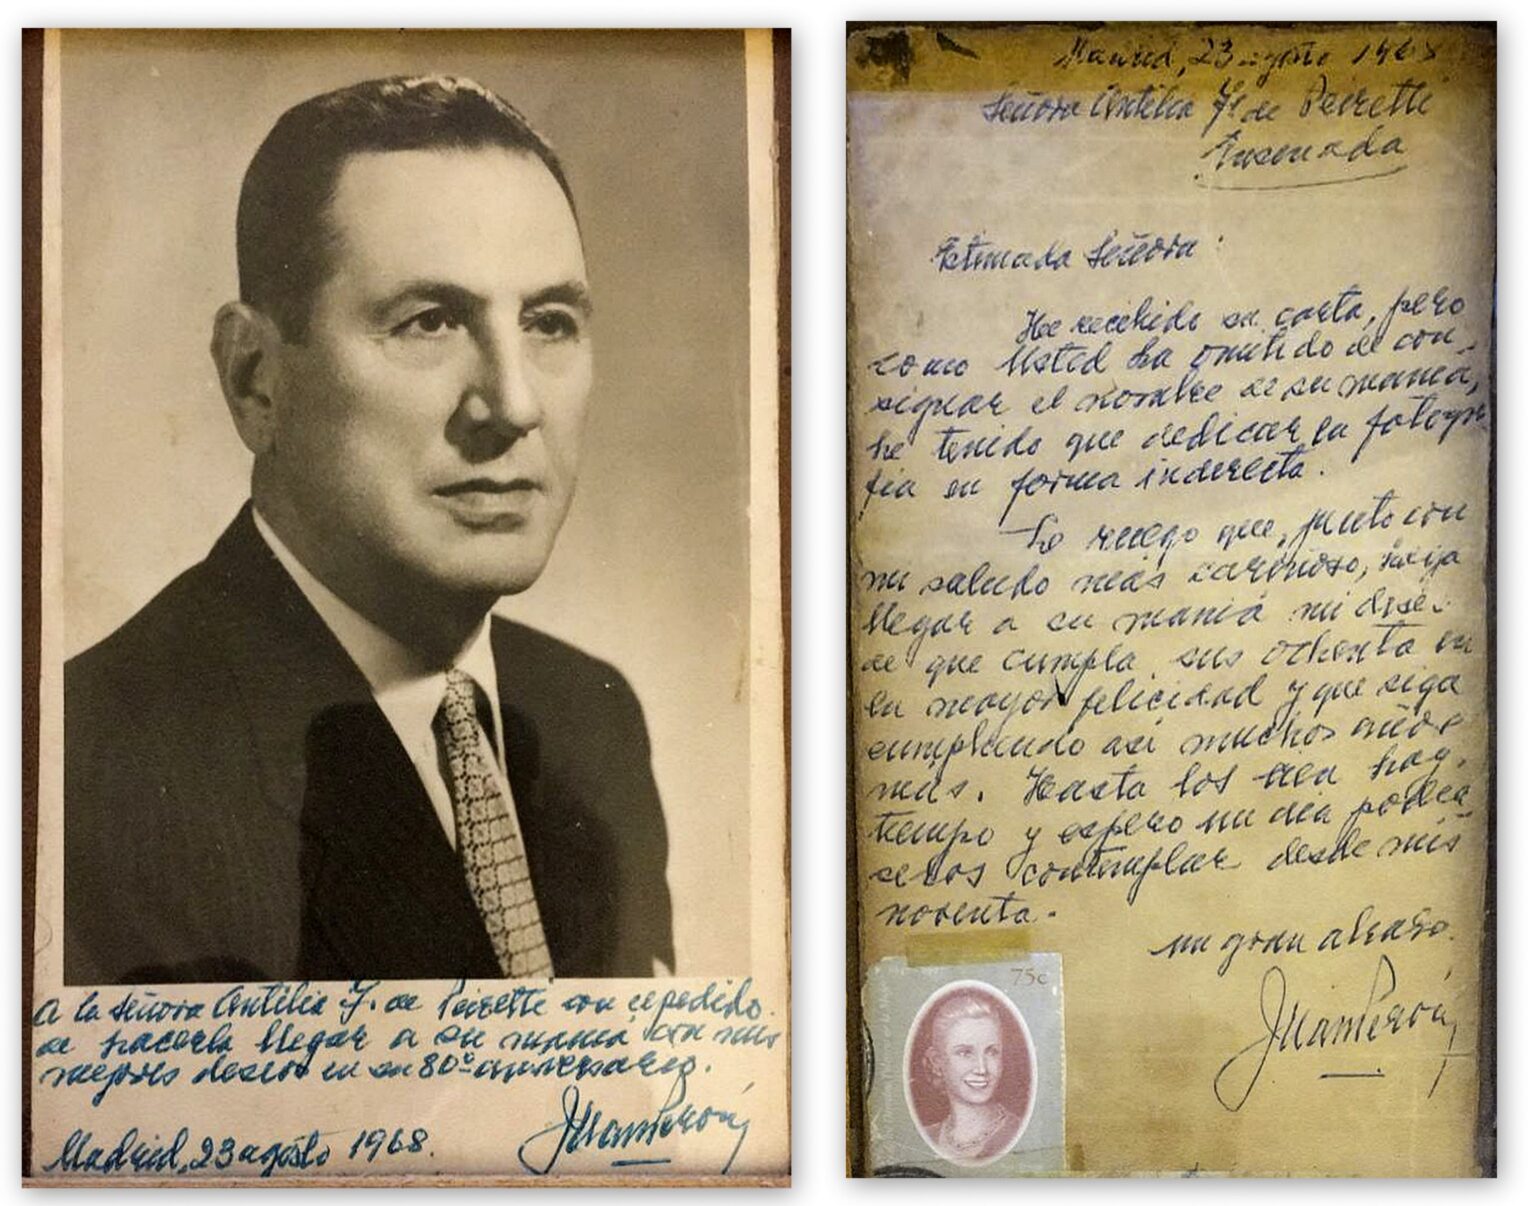 A la Señora Antilia F. de Peiretti con el pedido
de hacerla llegar a su mamá con mis
mejores deseos en su 80º aniversario.
Juan Perón
Madrid, 23 agosto 1968.
Madrid, 23 agosto 1968
Señora Antilia F. de Peiretti
Ensenada
Estimada Señora:
He recibido su carta, pero
como Usted ha omitido de con-
signar el nombre de su mamá,
he tenido que dedicar la fotogra-
fía en forma indirecta.
Le ruego que, junto con
mi saludo más cariñoso, haga
llegar a su mamá mi dese-
de que cumpla sus ochenta en
la mayor felicidad y que siga
cumpliendo así muchos años
más. Hasta los cien hay
tiempo y espero un día poder
selos contemplar desde mis
noventa.
Un gran abrazo.
Juan Perón
75c